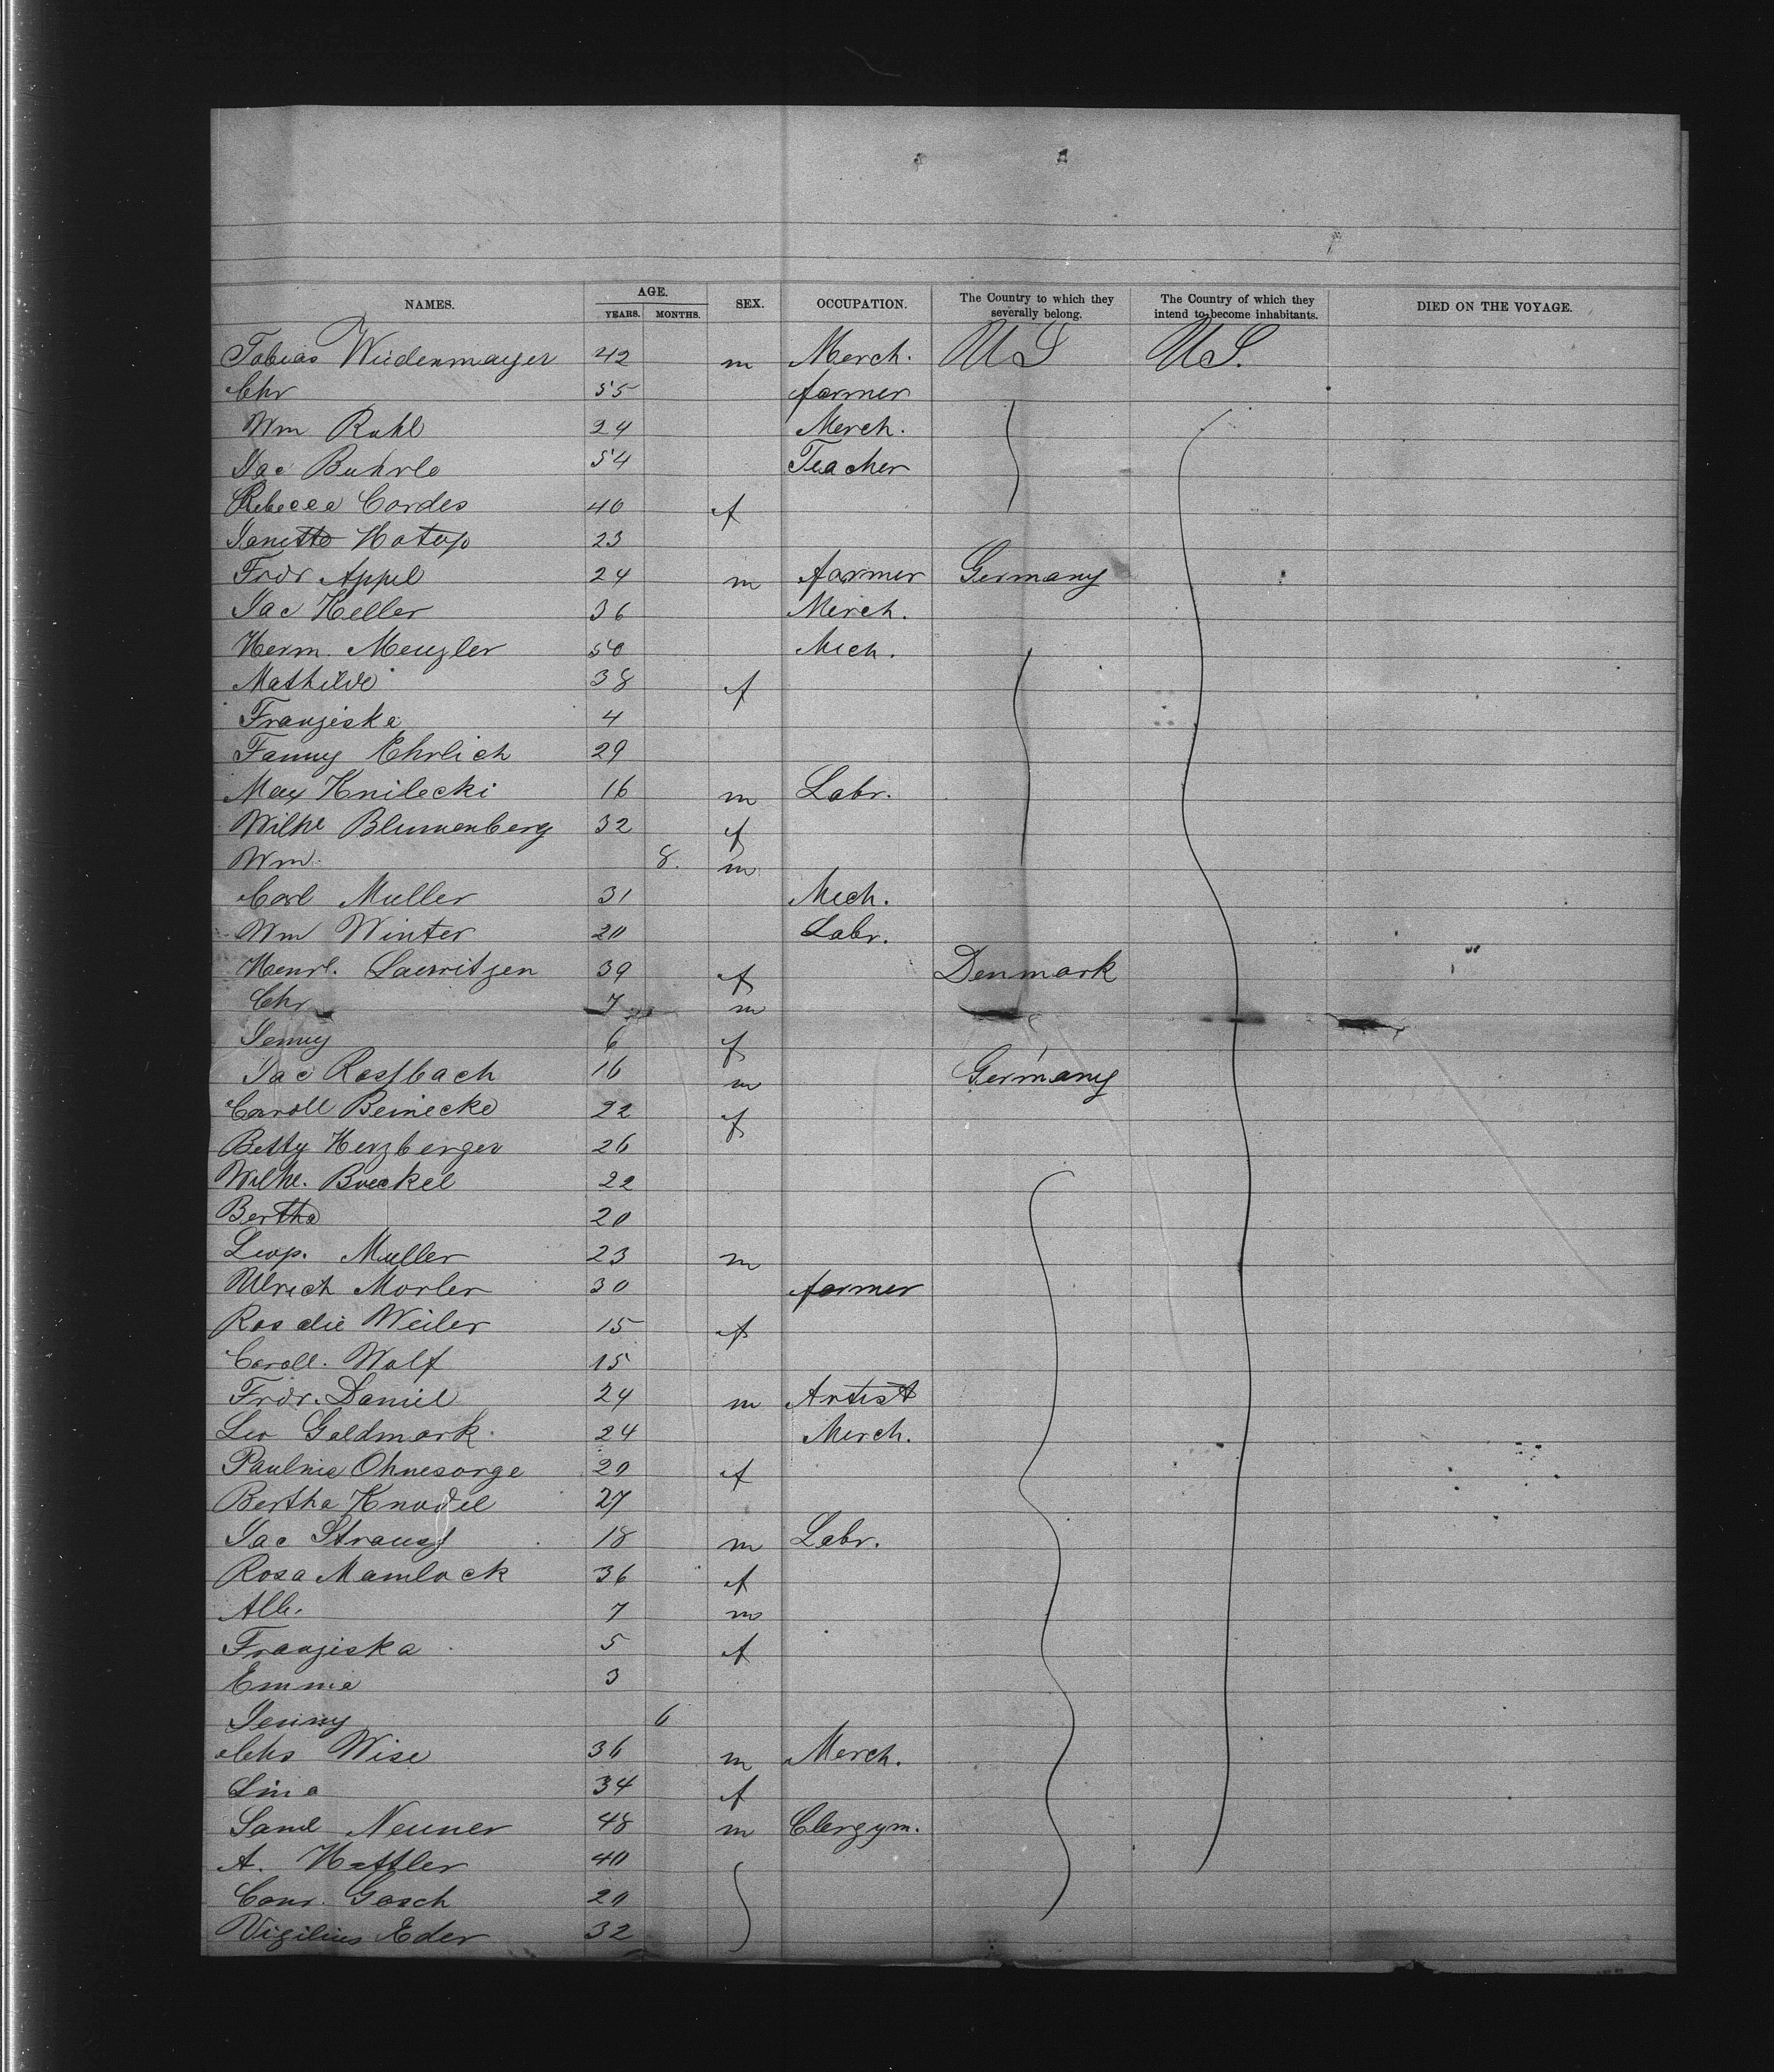 NAMES. AGE. SEX. OCCUPATION. The Country to which they severally belong. The Country of which they intend to become inhabitants. DIED ON THE VOYAGE.
YEARS. MONTHS.
Tobias Wiedenmayer 42 m Merch. US US.
Chr 55 farmer
Wm Ruhl 24 Merch.
Jac Buhrle 54 Teacher
Rebecca Cordes 40 f
Janette Hotop 23
Fredr Appel 24 m farmer Germany
Jac Keller 36 Merch.
Herm. Menzler 50 Mech.
Mathilde 38 f
Franziska 4
Fanny Ehrlich 29
Max Knilecki 16 m Labr.
Wilhe Blumenberg 32 f
Wm. 8. m
Carl Muller 31 Mech.
Wm Winter 20 Labr.
Henrt. Lauritzen 39 f Denmark
Chr 7 m
Jenny 6 f
Jac Rossbach 16 m Germany
Caroll Beinecke 22 f
Betty Herzberger 26
Wilhe. Boeckel 22
Bertha 20
Leop. Muller 23 m
Ulrich Morler 30 farmer
Rosalie Weiler 15 f
Caroll. Wolf 15
Frdr. Daniel 24 m Artist
Leo Goldmark 24 Merch.
Pauline Ohnesorge 20 f
Bertha Knodel 27
Jac Strauss 18 m Labr.
Rosa Mamlock 36 f
Alb. 7 m
Franziska 5 f
Emma 3
Jenny 6
Chs Wise 36 m Merch.
Lina 34 f
Saml Neuner 48 m Clergym.
A. Hattler 40
Conr. Gosch 20
Vigilius Eder 32